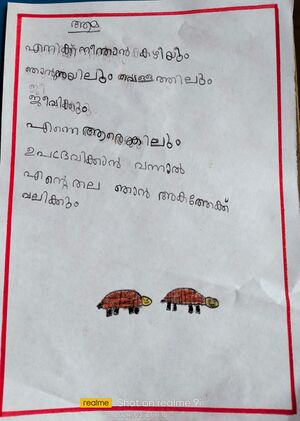 ആമ
എനിക്ക് നീന്താൻ കഴിയും
ഞാൻ കരയിലും വെള്ളത്തിലും
ജീവിക്കും
എന്നെ ആരെങ്കിലും
ഉപദ്രവിക്കാൻ വന്നാൽ
എന്റെ തല ഞാൻ അകത്തേക്ക്
വലിക്കും
realme Shot on realme 9i